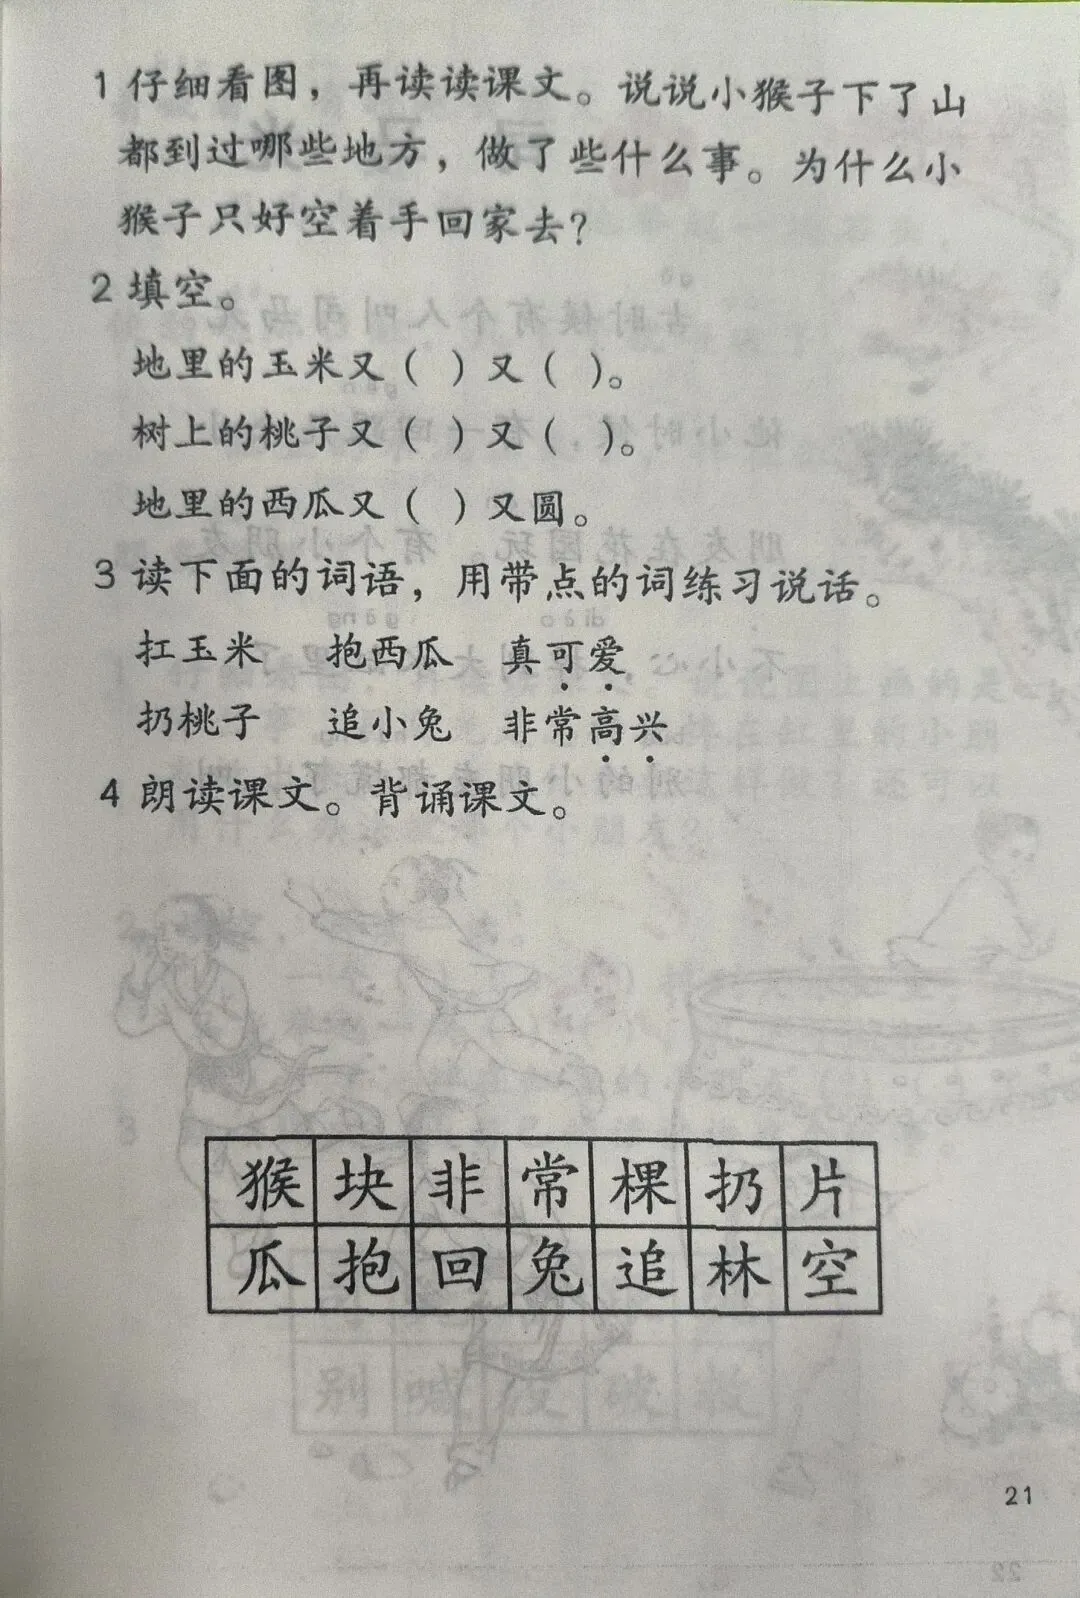 1 仔细看图，再读读课文。说说小猴子下了山
都到过哪些地方，做了些什么事。为什么小
猴子只好空着手回家去？
2 填空。
地里的玉米又（ ）又（ ）。
树上的桃子又（ ）又（ ）。
地里的西瓜又（ ）又圆。
3 读下面的词语，用带点的词练习说话。
扛玉米 抱西瓜 真可爱
扔桃子 追小兔 非常高兴
4 朗读课文。背诵课文。
猴 块 非 常 棵 扔 片
瓜 抱 回 兔 追 林 空
21